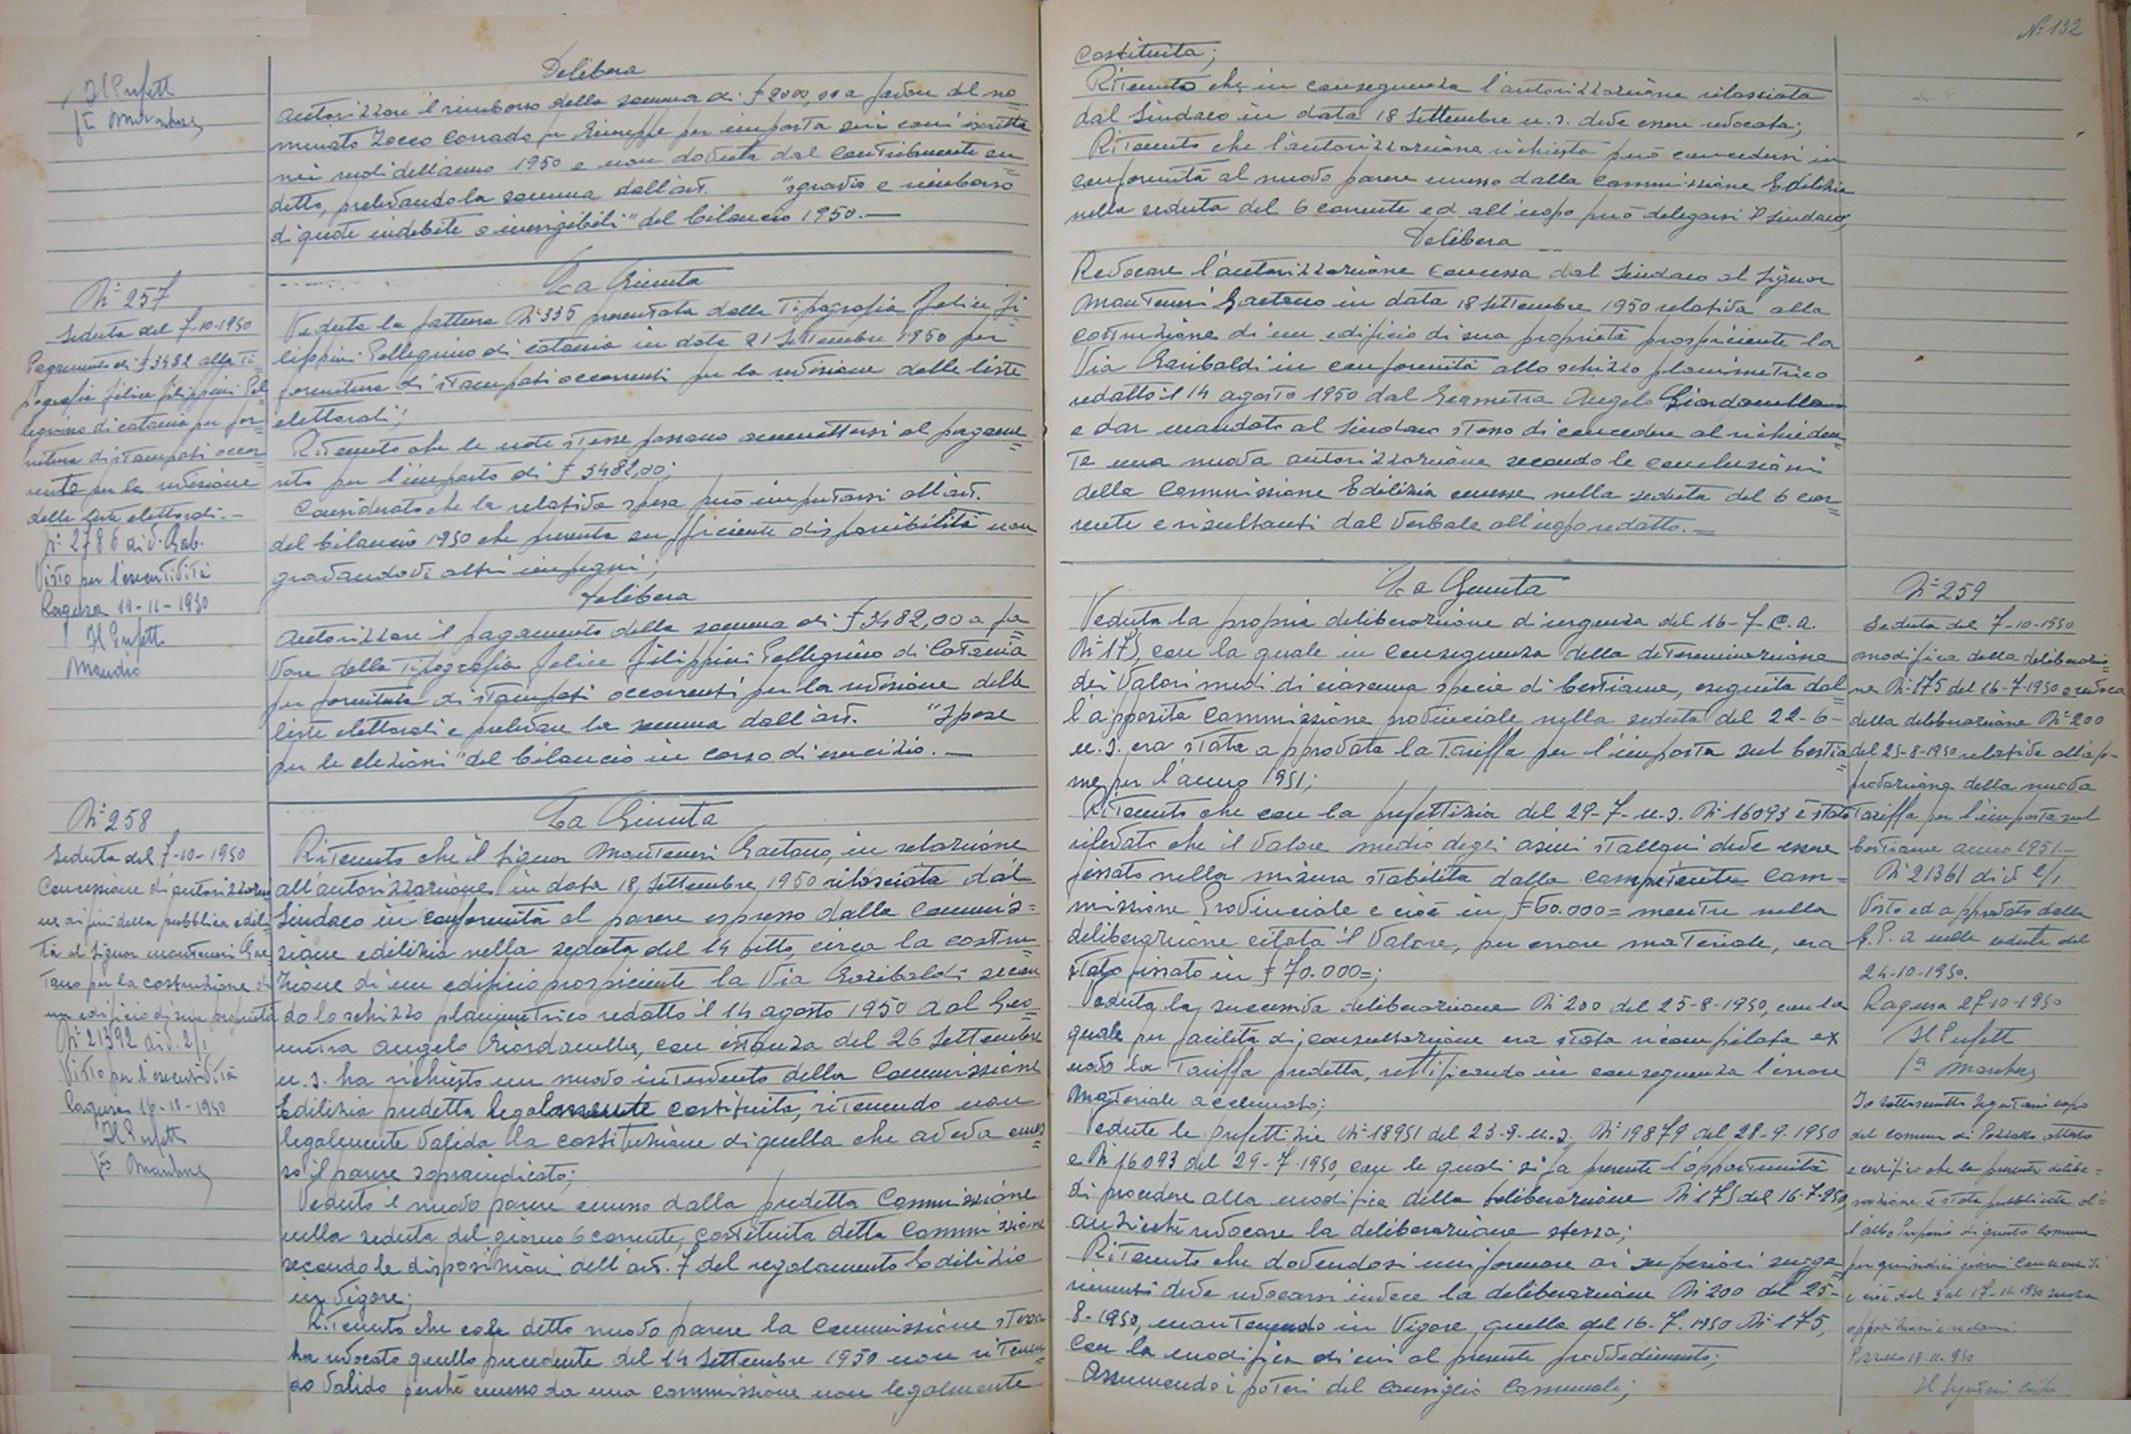 Il Prefetto
Delibera
autorizzare il rimborso della somma di £ 2000,00 a favore del no=
minato Zocco Corrado fu Giuseppe per imposta
nei ruoli dell'anno 1950 e non dovuta dal contribuente an=
detto, prelevando la somma dall'art. "sgravio e rimborso
di quote indebite o inesigibili" del bilancio 1950.—
N° 257
Seduta del 7-10-1950
Pagamento di £ 3482 alla Ti=
pografia Felice Filippini Pel=
legrino di Catania per for=
nitura di stampati occor=
renti per la revisione
delle liste elettorali.—
N° 2786 di Gab.
Visto per l'esecutività
Ragusa 10-11-1950
Il Prefetto
La Giunta
Veduta la fattura N° 335 presentata dalla Tipografia Felice Fi=
lippini Pellegrino di Catania in data 21 Settembre 1950 per
fornitura di stampati occorrenti per la revisione delle liste
elettorali;
Ritenuto che le note stesse possono ammettersi al pagame=
nto per l'importo di £ 3482,00;
Considerato che la relativa spesa può imputarsi all'art.
del bilancio 1950 che presenta sufficiente disponibilità non
gravandovi altri impegni;
Delibera
autorizzare il pagamento della somma di £ 3482,00 a fa=
vore della Tipografia Felice Filippini Pellegrino di Catania
per fornitura di stampati occorrenti per la revisione delle
liste elettorali e prelevare la somma dall'art. "Spese
per le elezioni" del bilancio in corso di esercizio.—
N° 258
Seduta del 7-10-1950
Concessione di autorizzazio=
ne ai fini della pubblica edili=
tà al Signor Manteneri Gae=
tano per la costruzione di
un edificio di sua proprietà
N° 21392 di d. 2/1
Visto per l'esecutività
Ragusa 16-11-1950
Il Prefetto
La Giunta
Ritenuto che il Signor Manteneri Gaetano, in relazione
all'autorizzazione in data 18 Settembre 1950 rilasciata dal
Sindaco in conformità al parere espresso dalla Commis=
sione edilizia nella seduta del 14 detto, circa la costru=
zione di un edificio prospiciente la Via Garibaldi secon=
do lo schizzo planimetrico redatto il 14 agosto 1950 dal Geo=
metra Angelo Giordanella, con istanza del 26 Settembre
u.s. ha richiesto un nuovo intervento della Commissione
Edilizia predetta legalmente costituita, ritenendo non
legalmente valida la costituzione di quella che aveva emes=
so il parere sopraindicato;
Veduto il nuovo parere emesso dalla predetta Commissione
nella seduta del giorno 6 corrente, costituita detta Commissione
secondo le disposizioni dell'art. 7 del regolamento Edilizio
in vigore;
Ritenuto che col detto nuovo parere la Commissione stessa
ha revocato quello precedente del 14 Settembre 1950 non ritenen=
do valido perché emesso da una commissione non legalmente
N° 132
costituita;
Ritenuto che in conseguenza l'autorizzazione rilasciata
dal Sindaco in data 18 Settembre u.s. deve essere revocata;
Ritenuto che l'autorizzazione richiesta può concedersi in
conformità al nuovo parere emesso dalla Commissione Edilizia
nella seduta del 6 corrente ed all'uopo può delegarsi il Sindaco;
Delibera
Revocare l'autorizzazione concessa dal Sindaco al Signor
Manteneri Gaetano in data 18 Settembre 1950 relativa alla
costruzione di un edificio di sua proprietà prospiciente la
Via Garibaldi in conformità allo schizzo planimetrico
redatto il 14 agosto 1950 dal Geometra Angelo Giordanella
e dar mandato al Sindaco stesso di concedere al richieden=
te una nuova autorizzazione secondo le conclusioni
della Commissione Edilizia emesse nella seduta del 6 cor=
rente e risultanti dal verbale all'uopo redatto.—
La Giunta
Veduta la propria deliberazione d'urgenza del 16-7-c.a.
N° 175, con la quale in conseguenza della determinazione
dei valori medi di ciascuna specie di bestiame, eseguita dal=
l'apposita Commissione provinciale nella seduta del 22-6-
u.s. era stata approvata la tariffa per l'imposta sul bestia=
me per l'anno 1951;
Ritenuto che con la prefettizia del 29-7-u.s. N° 16093 è stato
rilevato che il valore medio degli asini stalloni deve essere
fissato nella misura stabilita dalla competente Com=
missione Provinciale e cioè in £ 60.000= mentre nella
deliberazione citata il valore, per errore materiale, era
stato fissato in £ 70.000=;
Veduta la successiva deliberazione N° 200 del 25-8-1950, con la
quale per facilità di consultazione era stata ricompilata ex
novo la tariffa predetta, rettificando in conseguenza l'errore
materiale accennato;
Vedute le prefettizie N° 18951 del 23-9-u.s. N° 19879 del 28-9-1950
e N° 16093 del 29-7-1950, con le quali si fa presente l'opportunità
di procedere alla modifica della deliberazione N° 175 del 16-7-950,
anziché revocare la deliberazione stessa;
Ritenuto che dovendosi uniformare ai superiori sugge=
rimenti deve revocarsi invece la deliberazione N° 200 del 25-
8-1950, mantenendo in vigore quella del 16-7-1950 N° 175,
con la modifica di cui al presente provvedimento;
Assumendo i poteri del Consiglio Comunale;
N° 259
Seduta del 7-10-1950
modifica della deliberazio=
ne N° 175 del 16-7-1950 e revoca
della deliberazione N° 200
del 25-8-1950 relativa all'ap=
provazione della nuova
Tariffa per l'imposta sul
bestiame anno 1951—
N° 21361 di d. 2/1
Visto ed approvato dalla
G.P.A. nella seduta del
24-10-1950.
Ragusa 27-10-1950
Il Prefetto
Io sottoscritto Segretario capo
del comune di Pozzallo attesto
e certifico che la presente delibe=
razione è stata pubblicata al=
l'albo Pretorio di questo Comune
per quindici giorni consecutivi
e cioè dal 3 al 17-11-1950 senza
opposizioni e reclami.
Pozzallo 18-11-950
Il Segretario Capo